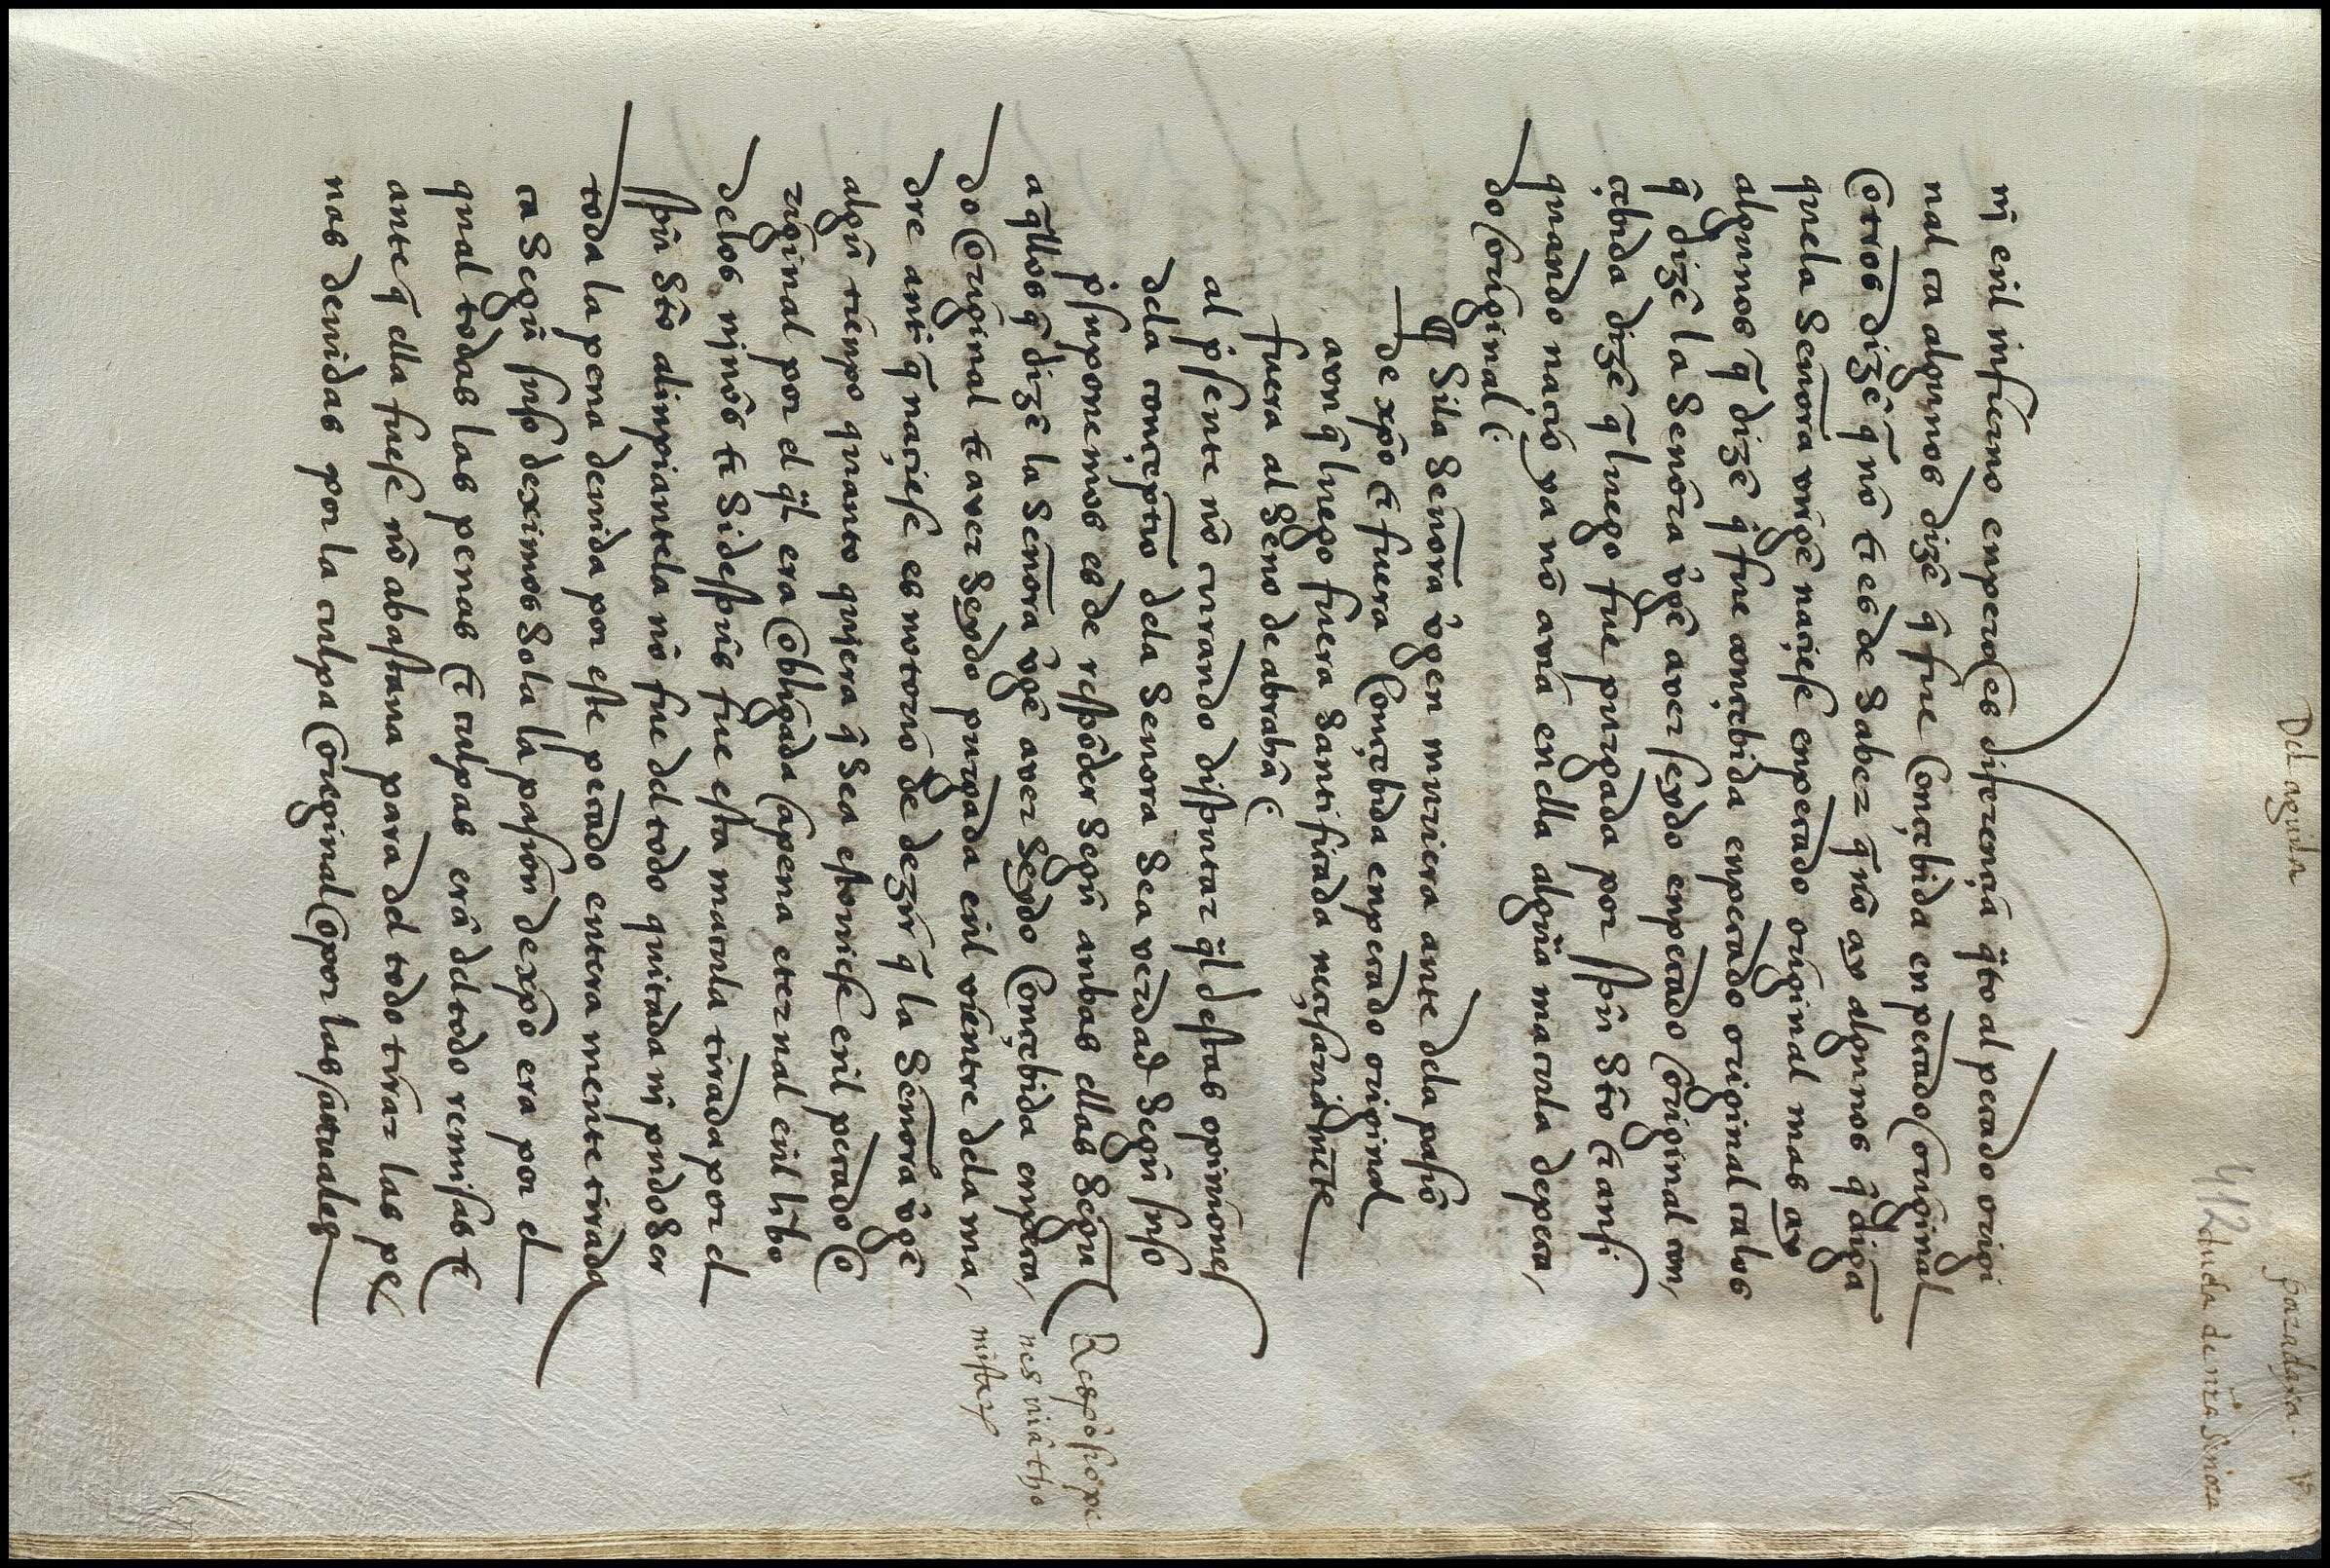 Del aguila
paradoxa. v
412
duda de nr̃a senora
nȷ̃ enl infierno enpero es diferençia q̃to al pecado origi
nal ca algunos dizẽ q̃ fue conçebida en pecado original
& otros dizẽ q̃ nõ & es de saber q̃ nõ ay algunos q̃ digã
quela señora virgẽ naçiese enpecado original mas ay
algunos q̃ dizẽ q̃ fue conçebida enpecado original ca los
q̃ dizẽ la señora vgẽ aver seydo enpecado original con,
çebida dizẽ q̃ luego fue purgada por spũ sto & ansi
quando naçio ya nõ avia en ella algũa macula depeca,
do original (.
¶ Sila señora v̑gen muriera ante dela pasiõ
de xp̃o & fuera conçebida enpecado original
avn q̃ luego fuera santificada neçesariamẽte
fuera al seno de abrahã (.
al p̃sente nõ curando disputar q̃l destas opiniones
dela conçeptiõ dela señora sea verdad segũ suso
p̃suponemos es de respõder segũ anbas ellas segũ
aq̃llos q̃ dizẽ la señora v̑gẽ aver seydo conçebida enpeca,
do original & aver seydo purgada enl vientre dela ma,
dre ante q̃ naçiese es notorio de dezir q̃ la señora v̑gẽ
algũ tienpo quanto quiera q̃ sea estouiese enl pecado o
riginal por el q̃l era obligada a pena eternal enl libo
delos niños & si despũs fue esta macula tirada por el
spũ sto alinpiantela nõ fue del todo quitada nȷ̃ pudo ser
toda la pena deuida por este pecado entera mente tirada
ca segũ suso deximos sola la pasion de xp̃o era por el
qual todas las penas & culpas erã del todo remisas &
ante q̃ ella fuese nõ abastaua para del todo tirar las pe
nas deuidas por la culpa original o por las actuales
Respõsiõ pi
nes viã tho
mistarũ